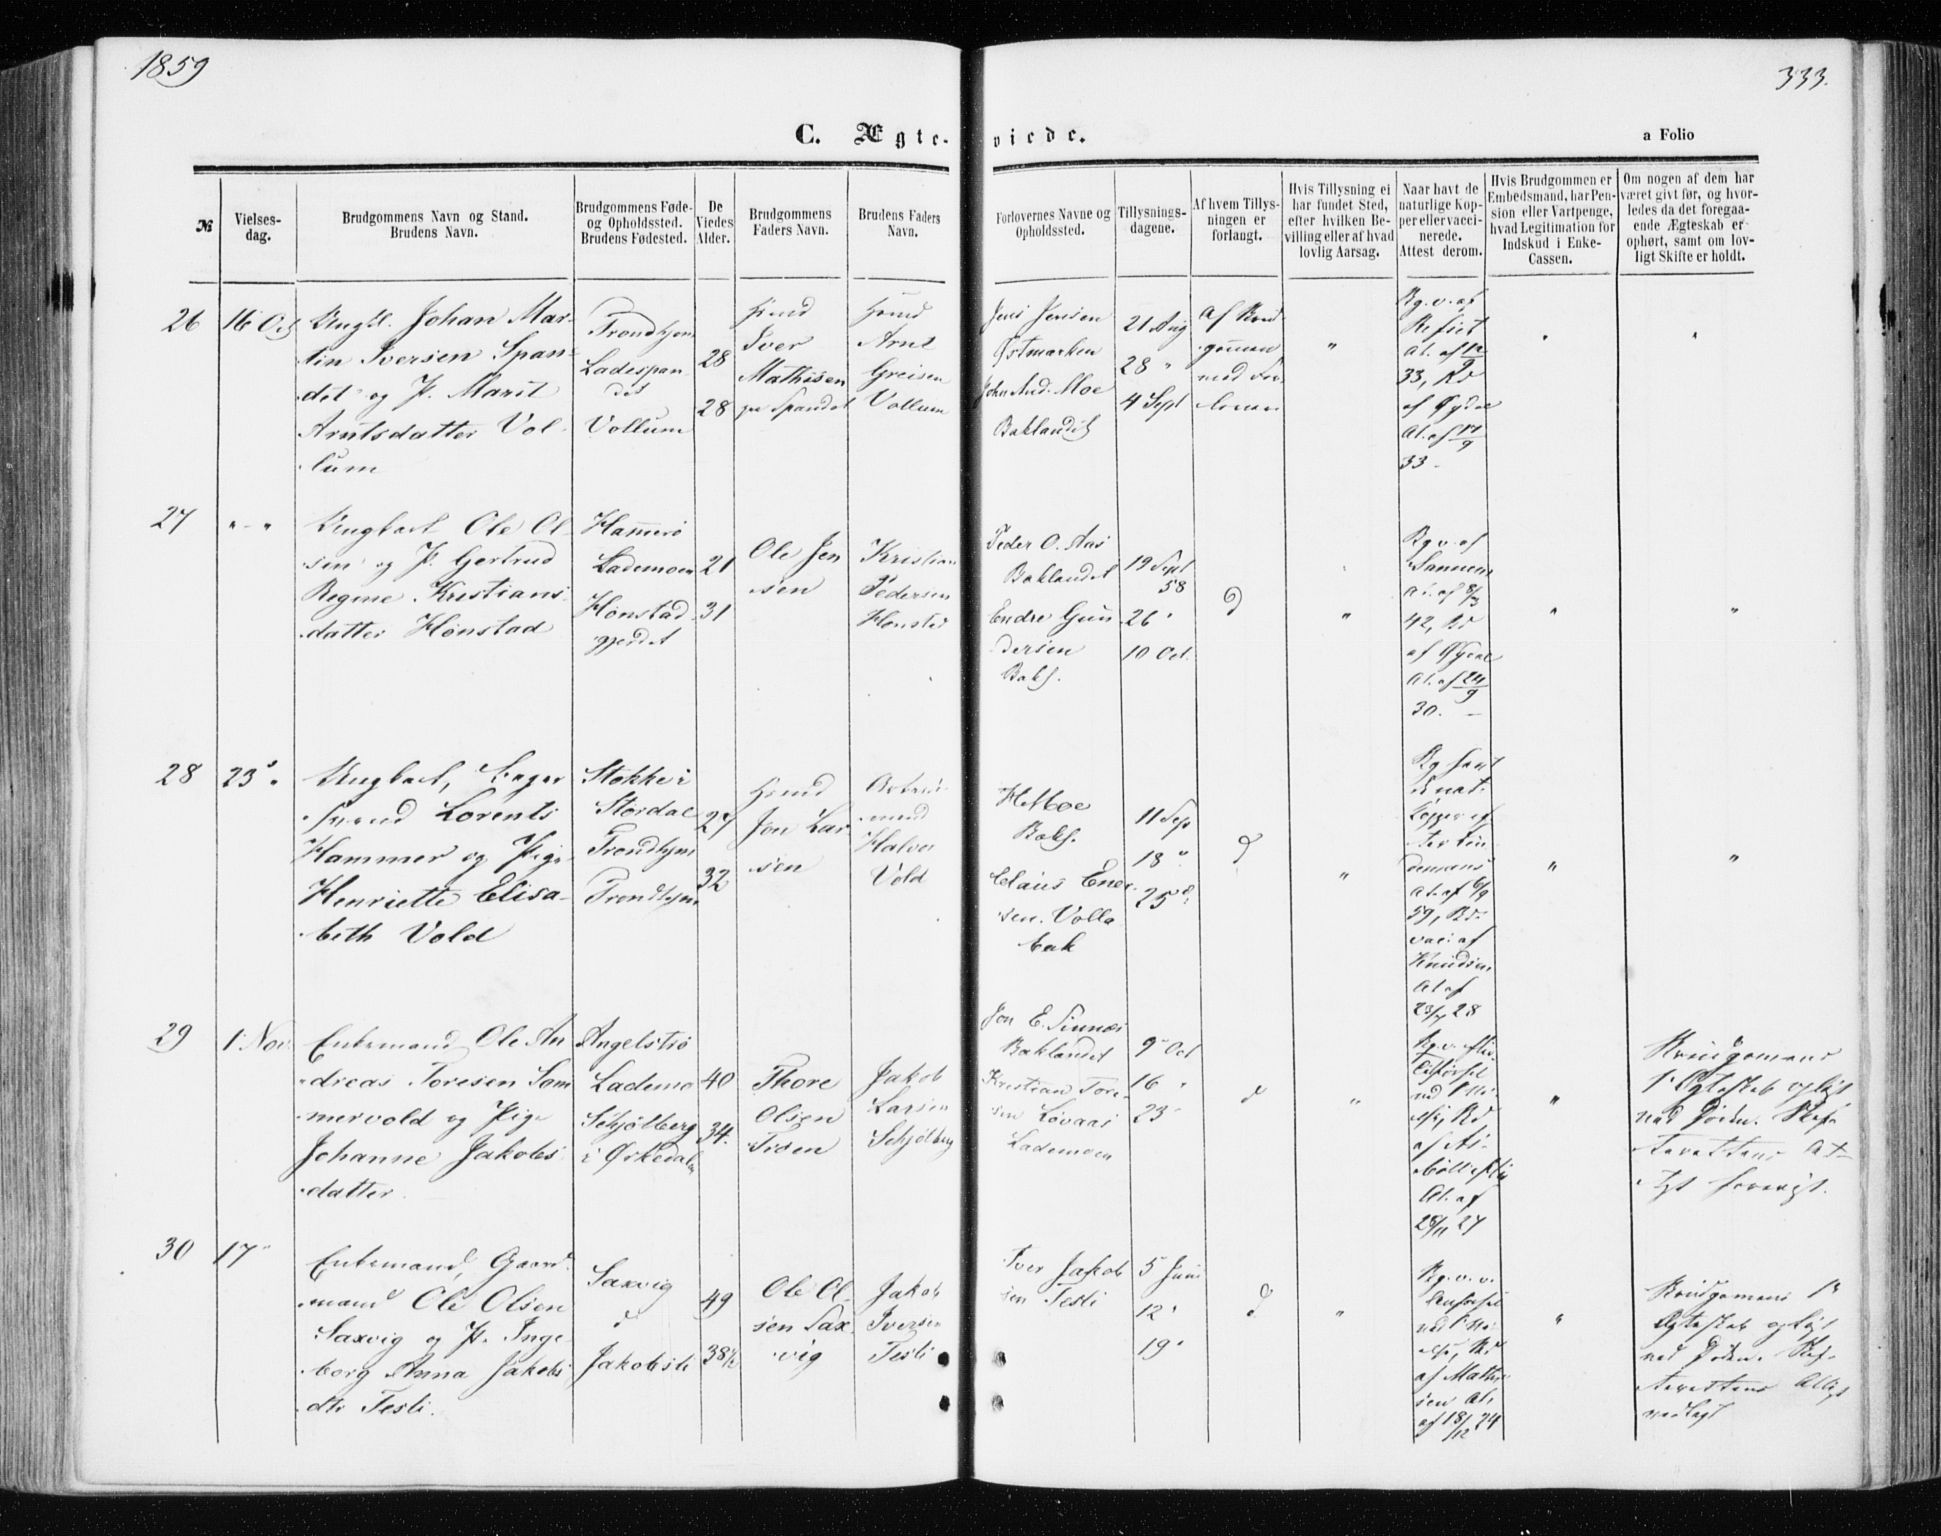 1859
333.
C. Ægte-viede.
a Folio
№
Vielses-
dag.
Brudgommens Navn og Stand.
Brudens Navn.
Brudgommens Føde-
og Opholdssted.
Brudens Fødested.
De
Viedes
Alder.
Brudgommens
Faders Navn.
Brudens Faders
Navn.
Forlovernes Navne og
Opholdssted.
Tillysnings-
dagene.
Af hvem Tillys-
ningen er
forlangt.
Hvis Tillysning ei
har fundet Sted,
efter hvilken Be-
villing eller af hvad
lovlig Aarsag.
Naar havt de
naturlige Kop-
per eller vacci-
nerede.
Attest derom.
Hvis Brudgommen er
Embedsmand, har Pen-
sion eller Vartpenge,
hvad Legitimation for
Indskud i Enke-
Cassen.
Om nogen af dem har
været givt før, og hvor-
ledes da det foregaa-
ende Ægteskab er
ophørt, samt om lov-
ligt Skifte er holdt.
26
16 Oct
Ungkl. Johan Mar-
tin Iversen Span-
det og P. Marit
Arntsdatter Vol-
lum
Trondhjem
Ladespan
det
Vollum
28
28
Iver
Mathisen
Spandet
Arnt
Greisen
Vollum
Jens Jensen
Østmarken
John And. Moe
Baklandet
21 Aug
28 "
4 Sept
Af Brud
gommen
med For
loverne
"
Bg. v. af
At. af 12/9
33, Bd
At. af 17/9
33 -
"
"
27
" - "
Ungkarl Ole Ol-
sen og P. Gertrud
Regine Kristians-
datter Hønstad
Hammerø
Lademoen
Hønstad
gjerdet
21
31
Ole Jen
sen
Kristian
Pedersen
Hønstad
Peder O. Aas
Baklandet
Endre Gun
dersen
Bakl.
19 Sept
58
26 "
10 Oct.
d
"
Bg. v. af
Sannem
At. af 8/3
42, Bd
At. af 24/9
30. -
"
"
28
23 "
Ungkarl,
Svend Lorents
Hammer og Pige
Henriette Elisa-
beth Vold
Stokke i
Stordal
Trondhjem
Trondhjem
27
32
Jon Lar
sen
Halvor
Vold
H. Moe
Bakl.
Claus Ener-
sen. Volla
bak
11 Sep
18 "
25 "
d
"
At. af 6/9
59, Bd.
vac. af
Knudsen
At. af
23/7 28
"
"
29
1 Nov.
Enkemand Ole An
dreas Toresen Som
mervold og Pige
Johanne Jakobs
datter.
Angelstrø
Lademo
Schjølberg
i Ørkedalen
40
34.
Thore
Olsen
Trøen
Jakob
Larsen
Schjølberg
Jon E. Tinnæs
Baklandet
Kristian Tore-
sen Løvaas
Lademoen
9 Oct
16 "
23 "
d
"
At. af
28/11 27
"
Brudgomens
1 Ægteskab opløst
ved Døden. Skif-
terettens At-
test forevist.
30
17 "
Enkemand, Gaard-
mand Ole Olsen
Saxvig og P. Inge
borg Anna Jakobs
dtr Tesli.
Saxvig
d
Jakobsli
49
38½
Ole Ol-
sen Sax-
vig
Jakob
Iversen
Tesli
Iver Jakob
sen Tesli
5 Juni
12 "
19 "
d
"
Bg. v. v.
af Mathi
sen At.
af 18/12 24
"
Brudgomens 1
Ægteskab opløst
ved Døden. Skif-
terettens Attest
vedlagt